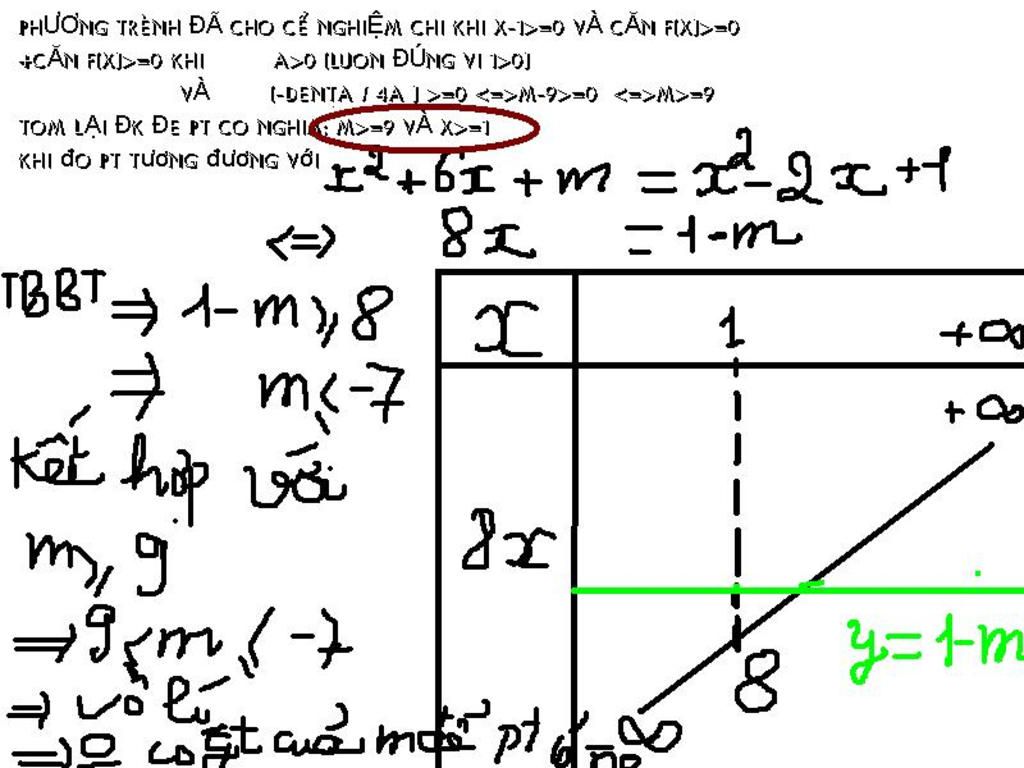 PHƯƠNG TRÈNH ĐÃ CHO CỂ NGHIỆM CHI KHI X-1>=0 VÀ CĂN F(X)>=0
+CĂN F(X)>=0 KHI A>0 (LUON ĐÚNG VI 1>0)
VÀ (-DENTA / 4A ) >=0 <=>M-9>=0 <=>M>=9
TOM LẠI ĐK ĐE PT CO NGHIA: M>=9 VÀ X>=1
KHI ĐO PT TƯƠNG ĐƯƠNG VỚI
x² + 6x + m = x² - 2x + 1
<=> 8x = 1 - m
TBBT => 1 - m ≥ 8
=> m ≤ -7
Kết hợp với
m ≥ 9
=> 9 ≤ m ≤ -7
=> vô lí
x 1 +∞
+∞
8x
y = 1 - m
8
∞